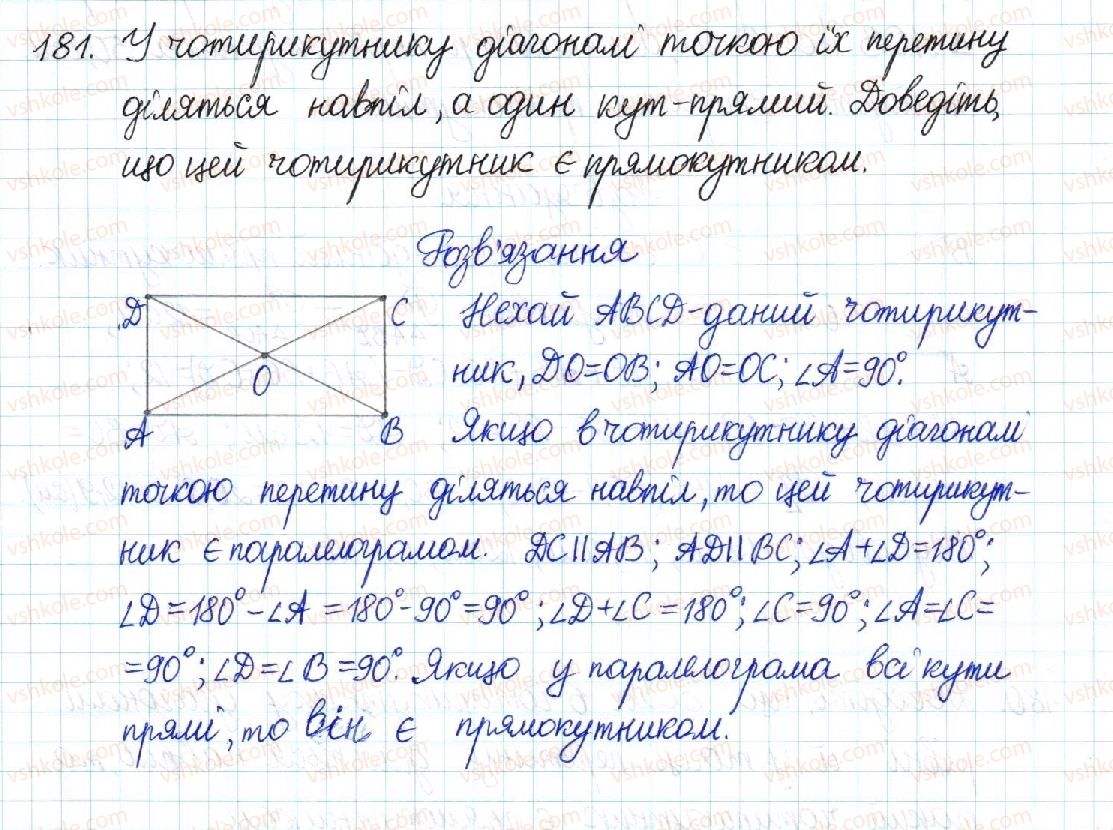 181. У чотирикутнику діагоналі точкою їх перетину
діляться навпіл, а один кут-прямий. Доведіть,
що цей чотирикутник є прямокутником.
Розв'язання
D
C
O
A
B
Нехай ABCD-даний чотирикут-
ник, DO=OB; AO=OC; ∠A=90°.
Якщо в чотирикутнику діагоналі
точкою перетину діляться навпіл, то цей чотирикут-
ник є паралелограмом. DC||AB; AD||BC; ∠A+∠D=180°;
∠D=180°-∠A=180°-90°=90°; ∠D+∠C=180°; ∠C=90°; ∠A=∠C=
=90°; ∠D=∠B=90°. Якщо у паралелограма всі кути
прямі, то він є прямокутником.
vshkole.com